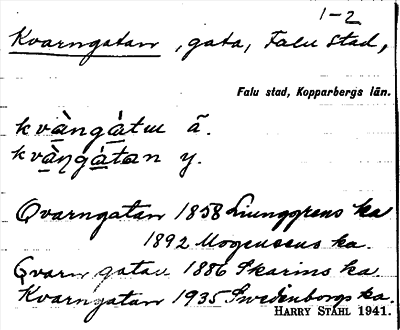 1-2
Kvarngatan, gata, Falu stad,
Falu stad, Kopparbergs län.
kvàngàtω ä.
kvàŋgàtan y.
Qvarngatan 1858 Liunggrens ka
1892 Mogensens ka.
Qvarngatan 1886 Skarins ka
Kvarngatan 1935 Swedenborgs ka.
HARRY STÅHL 1941.